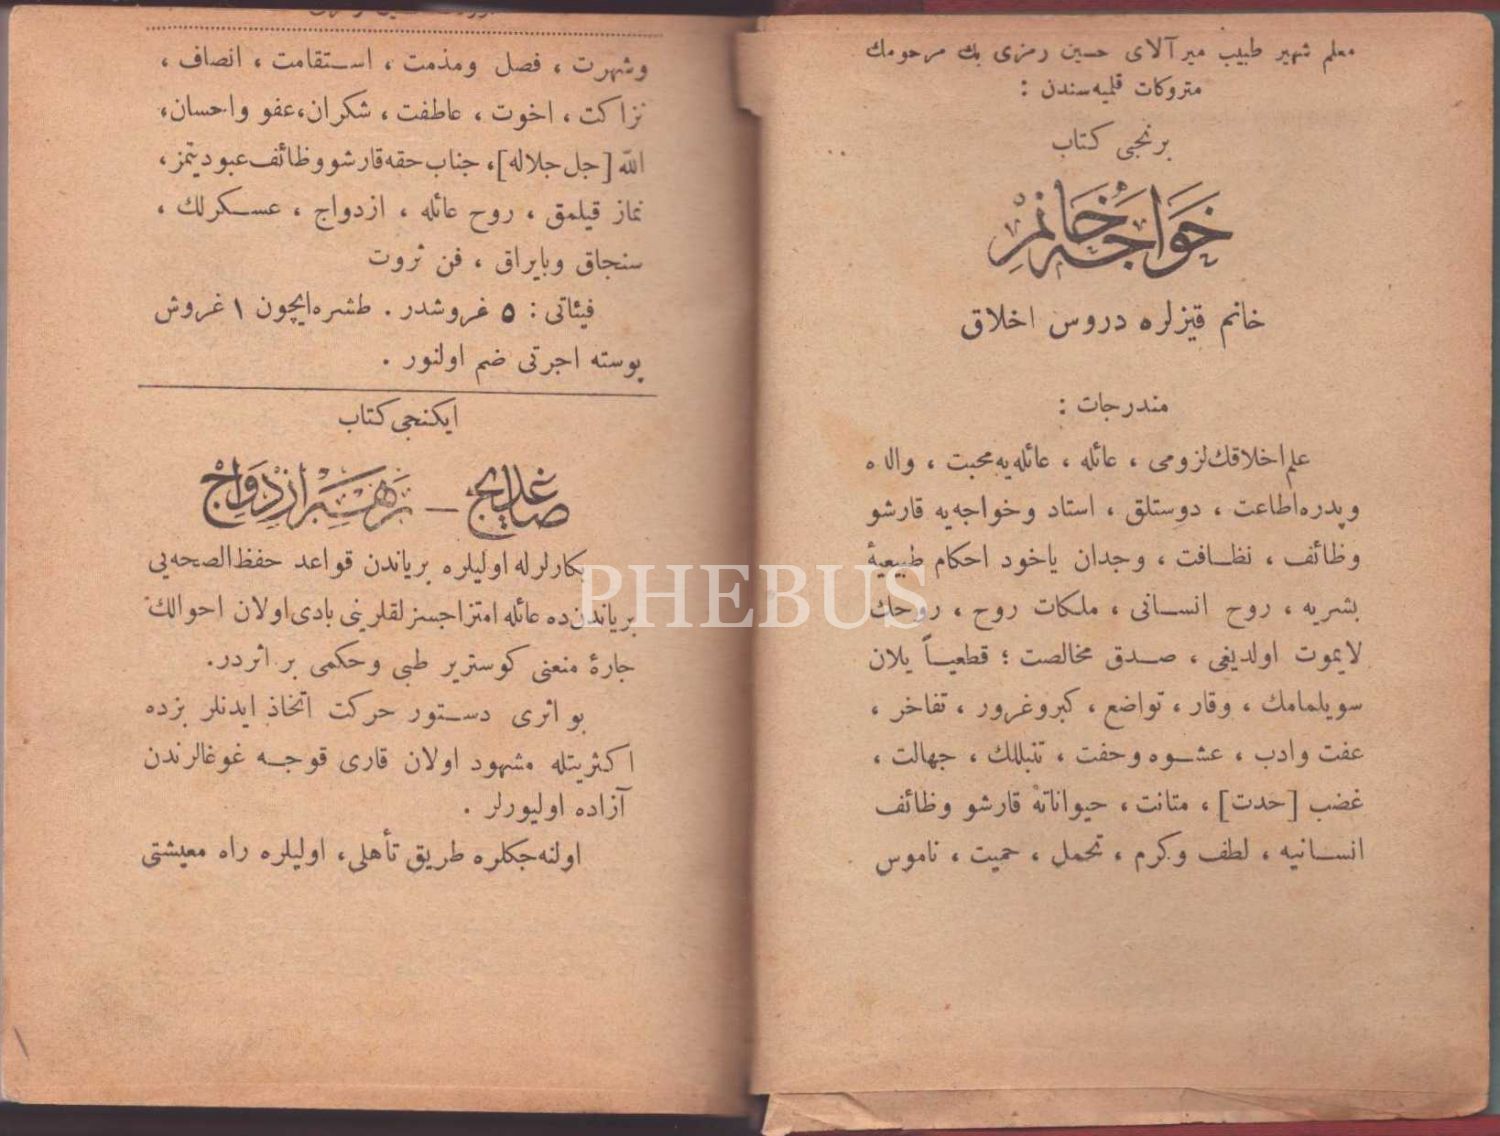 معلم شهیر طبیب میرآلای حسین رمزی بك مرحومك
متروكات قلمیه‌سندن :
برنجی كتاب
خَوَاجَه خَانِمْ
خانم قیزلره دروس اخلاق
مندرجات :
علم اخلاقك لزومی ، عائله ، عائله‌یه محبت ، والده
وپدره اطاعت ، دوستلق ، استاد وخواجه‌یه قارشو
وظائف ، نظافت ، وجدان یاخود احكام طبیعیۀ
بشریه ، روح انسانی ، ملكات روح ، روحك
لایموت اولدیغی ، صدق مخالصت ؛ قطعیاً یلان
سویلمامك ، وقار ، تواضع ، كبروغرور ، تفاخر ،
عفت وادب ، عشوه وحفت ، تنبللك ، جهالت ،
غضب [حدت] ، متانت ، حیواناته قارشو وظائف
انسانیه ، لطف وكرم ، تحمل ، حمیت ، ناموس
وشهرت ، فصل ومذمت ، استقامت ، انصاف ،
نزاكت ، اخوت ، عاطفت ، شكران ، عفو واحسان ،
الله [جل جلاله] ، جناب حقه قارشو وظائف عبودیتمز ،
نماز قیلمق ، روح عائله ، ازدواج ، عسكرلك ،
سنجاق وبایراق ، فن ثروت
فیئاتی : ٥ غروشدر . طشره ایچون ١ غروش
پوسته اجرتی ضم اولنور .
ایكنجی كتاب
صاغدیج — رَهْبَرِ اَزْدِوَاجْ
بكارلرله اولیلره بریاندن قواعد حفظ الصحه‌یی
بریاندن‌ده عائله امتزاجسزلقلرینی بادی اولان احوالك
چارۀ منعنی كوستریر طبی وحكمی بر اثردر.
بو اثری دستور حركت اتخاذ ایدنلر بزده
اكثریتله مشهود اولان قاری قوجه غوغالرندن
آزاده اولیورلر .
اولنه‌جكلره طریق تأهلی ، اولیلره راه معیشتی
PHEBUS